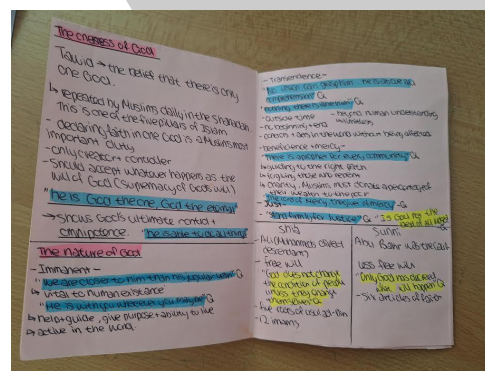 The oneness of God
Tawid → the belief that there's only
one God.
↳ repeated by Muslims daily in the Shahadah
This is one of the five pillars of Islam
- declaring faith in one God is a Muslims most
important duty
- only creator + controller
- should accept whatever happens as the
will of God (supremacy of God's will)
"he is God the one, God the eternal"
→ shows God's ultimate control +
omnipotence. "he is able to do all things"
The nature of God
- Immanent -
"We are closer to him than his jugular vein" Q
↳ vital to human existance
"He is with you wherever you may be" Q
↳ help + guide, give purpose + ability to live
↳ active in the world.
- Transendence -
"No vision can grasp him. He is above all
comprehension" Q
"nothing there is like him" Q
- outside time - beyond human understanding
- no beginning + end - limitless
- controls + acts in the world without being affected
- beneficence + mercy -
"There is a prophet for every community" Q
↳ guiding to the right path
↳ forgiving those who repent
↳ charity, Muslims must donate a percentage of
their wealth to the poor
- Just -
"stand firmly for justice" Q "Is God not the
best of all judges"
Shia
Ali (Muhammads direct
descendant)
- free will
"God does not change
the condition of people
unless they change
themselves" Q
- five roots of usul ad-Din
- 12 imams
Sunni
Abu Bakr was the first
less free will
"Only God has decreed
what will happen" Q
- six articles of faith